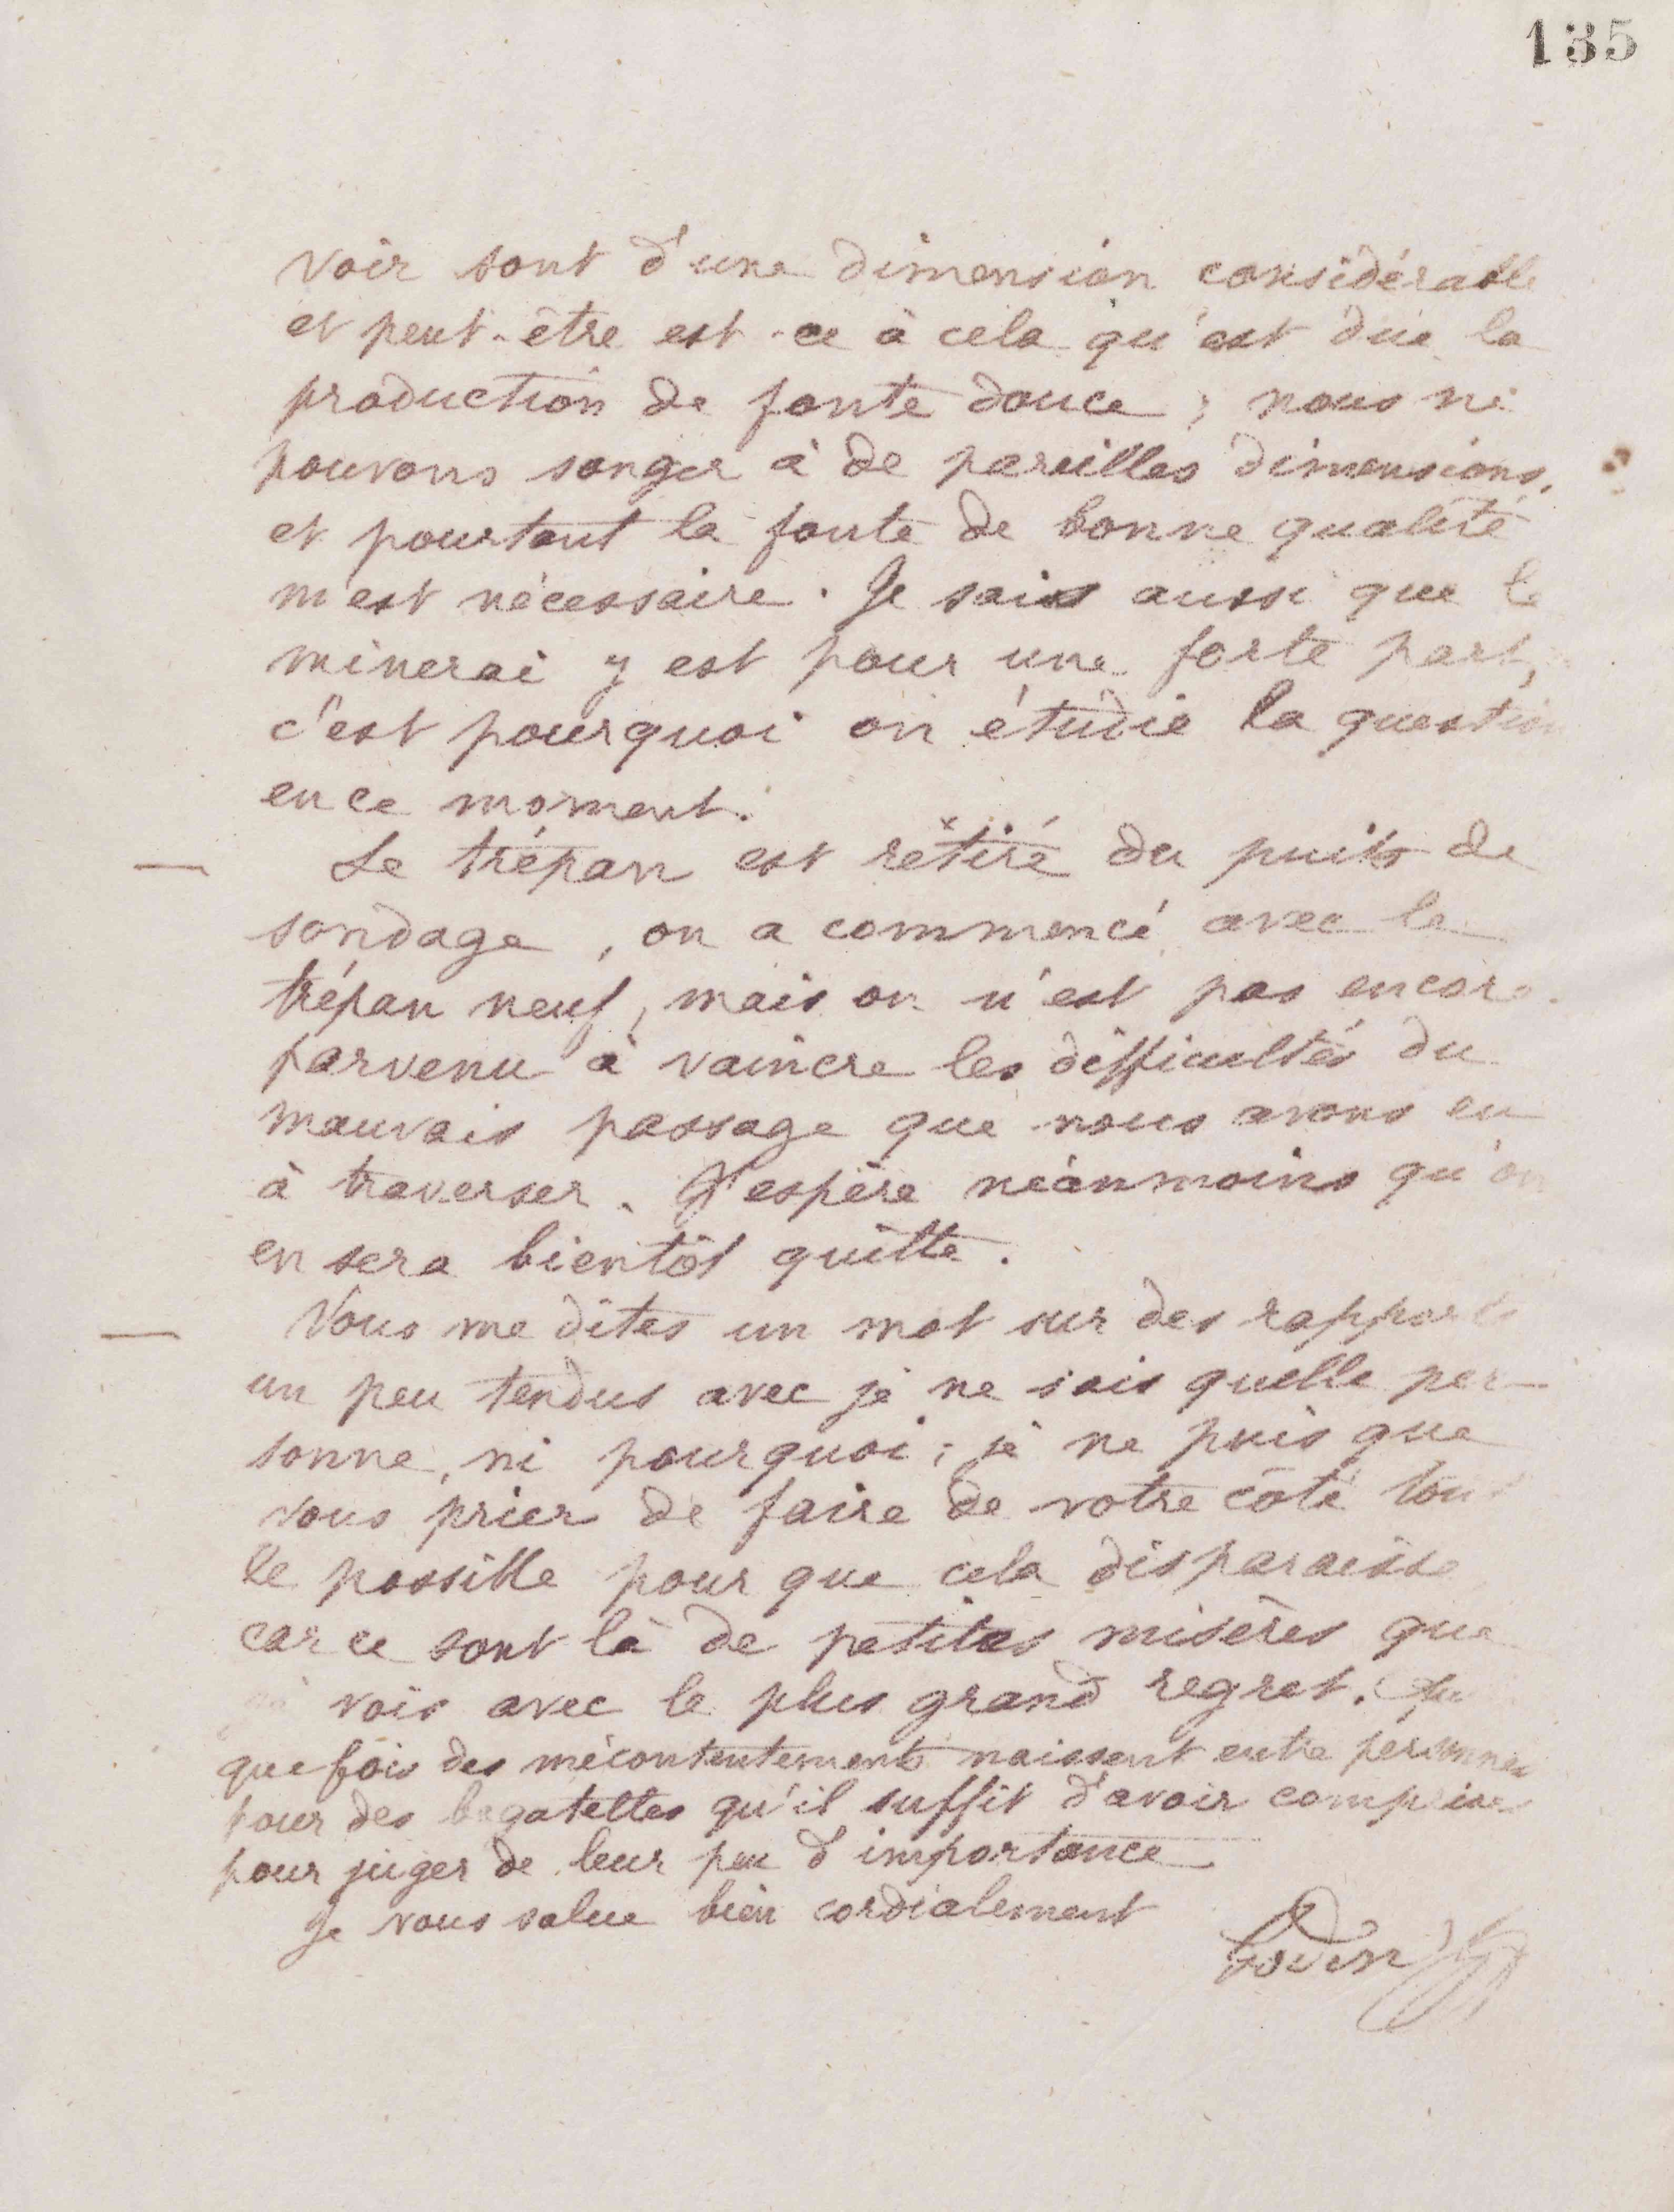 135
voir sont d'une dimension considérable
et peut-être est-ce à cela qu'est due la
production de fonte douce ; nous ne
pouvons songer à de pareilles dimensions,
et pourtant la fonte de bonne qualité
m'est nécessaire. Je sais aussi que le
minerai y est pour une forte part,
c'est pourquoi on étudie la question
en ce moment.
— Le trépan est retiré du puits de
sondage, on a commencé avec le
trépan neuf, mais on n'est pas encore
parvenu à vaincre les difficultés du
mauvais passage que nous avons eu
à traverser. J'espère néanmoins qu'on
en sera bientôt quitte.
— Vous me dites un mot sur des rapports
un peu tendus avec je ne sais quelle per-
sonne, ni pourquoi ; je ne puis que
vous prier de faire de votre côté tout
le possible pour que cela disparaisse
car ce sont là de petites misères que
je vois avec le plus grand regret.
que fois des mécontentements naissent entre personnes
pour des bagatelles qu'il suffit d'avoir comprises
pour juger de leur peu d'importance
Je vous salue bien cordialement
Godin